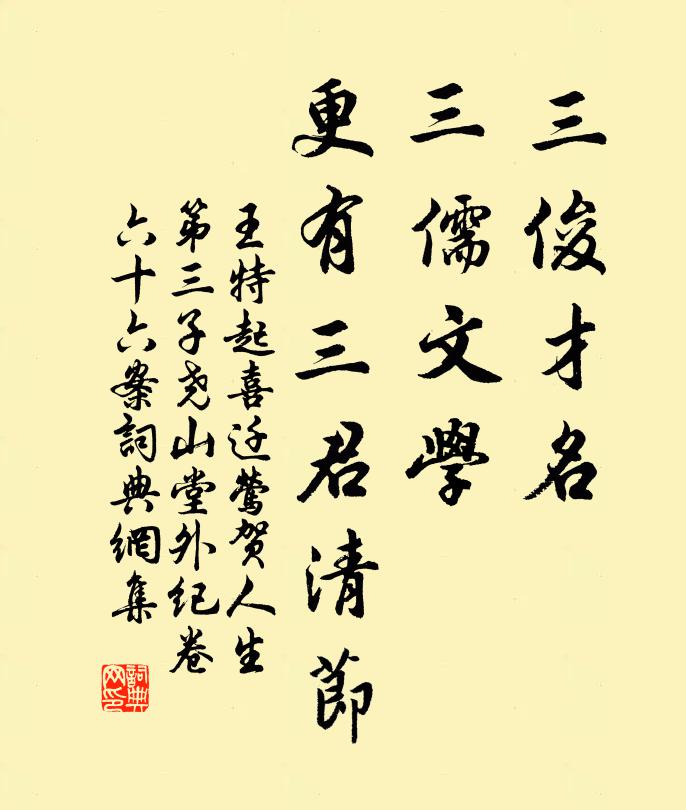 三俊才名
三儒文學
更有三君清節
王特起喜迁莺贺人生
第三子尧山堂外纪卷
六十六案詞典網集
詞典網印